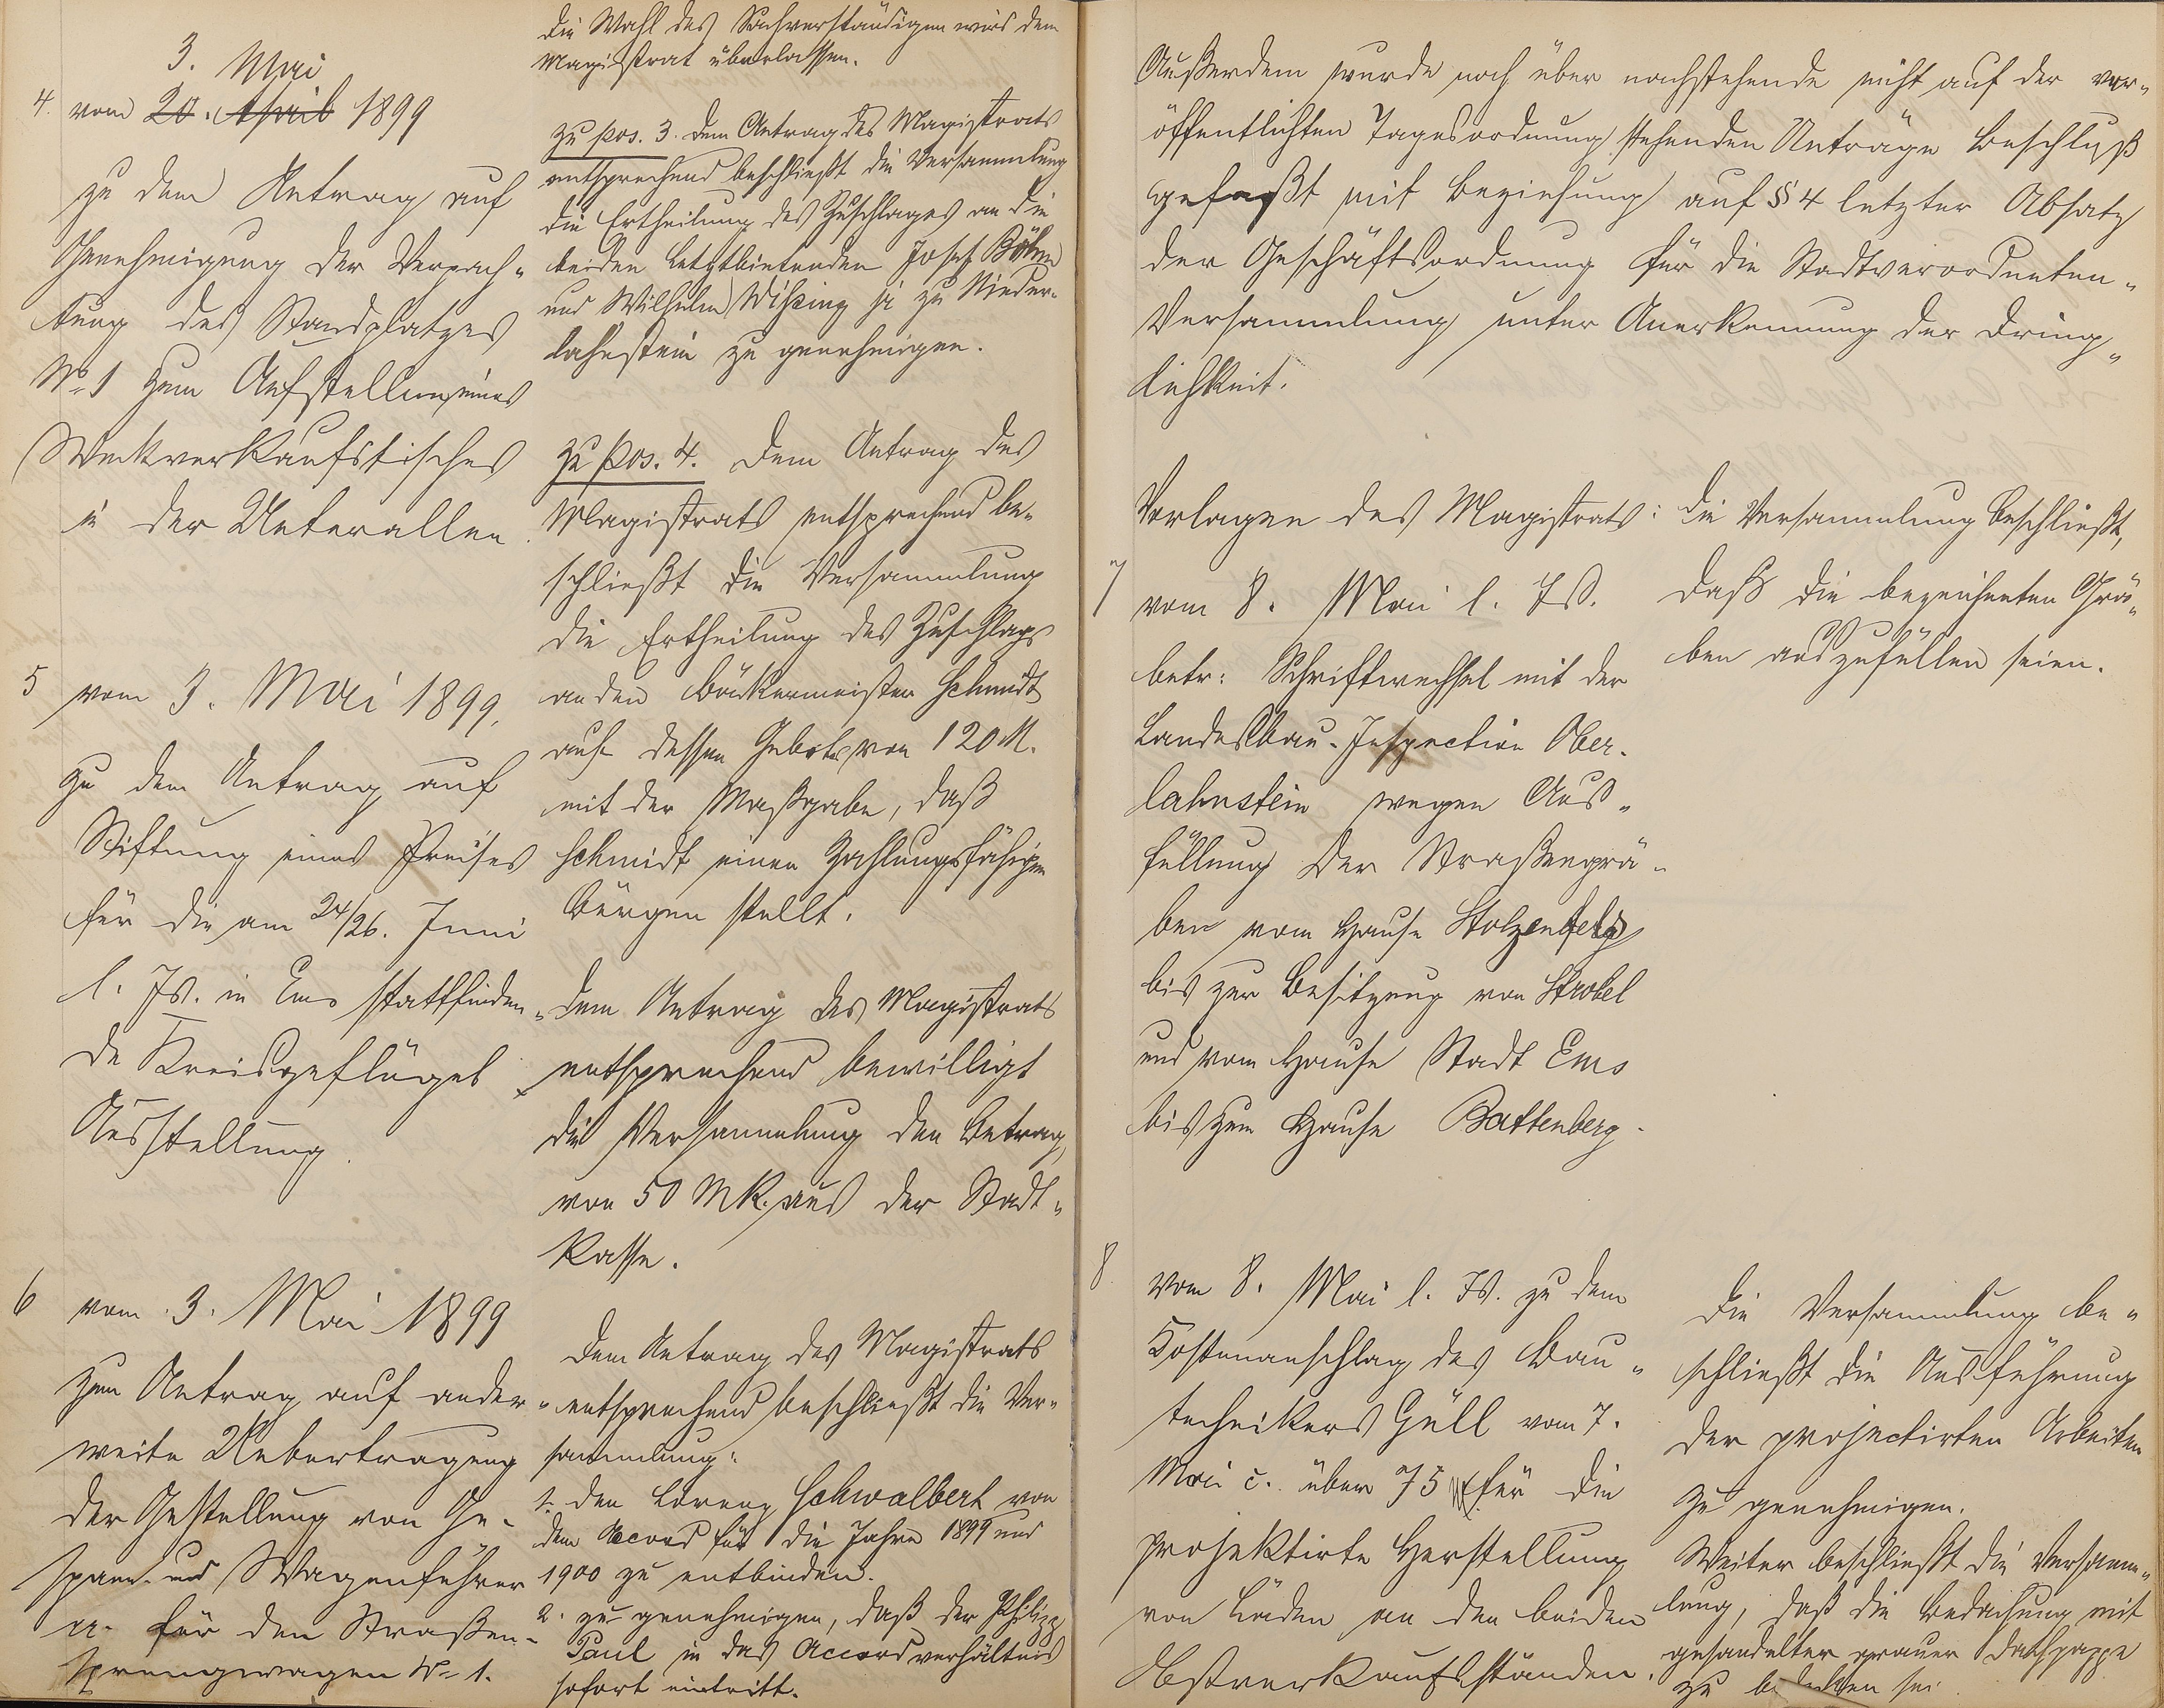 3. Mai
4. vom 20. April 1899
zu dem Antrag auf
Genehmigung der Verpach-
tung des Standplatzes
No 1 zum Aufstellen eines
Weckverkaufstisches
in der Unterallee.
5 vom 3. Mai 1899,
zu dem Antrag auf
Stiftung eines Preises
für die am 24/26. Juni
l. Js. in Ems stattfinden-
de Kreisgeflügel
Ausstellung.
6 vom 3. Mai 1899
zum Antrag auf ander-
weite Uebertragung
der Gestellung von Ge-
spann und Wagenführer
für den Straßen-
sprengwagen No 1.
die Wahl des Sachverständigen wird dem
Magistrat überlassen.
zu pos. 3. Dem Antrag des Magistrats
entsprechend beschließt die Versammlung
die Ertheilung des Zuschlages an die
beiden Letztbietenden Josef Böhm
und Wilhelm zu Nieder-
lahnstein zu genehmigen.
zu pos. 4. Dem Antrag des
Magistrats entsprechend be-
schließt die Versammlung
die Ertheilung des Zuschlags
an den Bäckermeister Schmidt
auf dessen Gebot von 120 M.
mit der Maßgabe, daß
Schmidt einen zahlungsfähigen
Bürgen stellt.
Dem Antrag des Magistrats
entsprechend bewilligt
die Versammlung den Betrag
von 50 Mk. aus der Stadt-
kasse.
Dem Antrag des Magistrats
entsprechend beschließt die Ver-
sammlung:
1. den Lorenz Schwalbert von
dem Accord für die Jahre 1899 und
1900 zu entbinden.
2. zu genehmigen, daß der Philipp
Paul in das Accordverhältnis
sofort eintritt.
Außerdem wurde noch über nachstehende nicht auf der ver-
öffentlichten Tagesordnung stehenden Anträge Beschluß
gefaßt mit Beziehung auf § 4 letzter Absatz
der Geschäftsordnung für die Stadtverordneten-
Versammlung unter Anerkennung der Dring-
lichkeit.
Vorlagen des Magistrats:
7 vom 8. Mai l. Js.
betr: Schriftwechsel mit der
Landesbau-Inspection Ober-
lahnstein wegen Aus-
füllung der Straßengrä-
ben vom Hause Stolzenfels
bis zur Besitzung von Strobel
und vom Hause Stadt Ems
bis zum Hause Battenberg.
8 vom 8. Mai l. Js. zu dem
Kostenanschlag des Bau-
technikers Güll vom 7.
Mai c. über 75 M für die
projektirte Herstellung
von Läden an den beiden
Obstverkaufsständen.
Die Versammlung beschließt,
daß die bezeichneten Grä-
ben auszufüllen seien.
Die Versammlung be-
schließt die Ausführung
der projectirten Arbeiten
zu genehmigen.
Weiter beschließt die Versamm-
lung, daß die Bedachung mit
gesandelter grauer Dachpappe
zu sei.